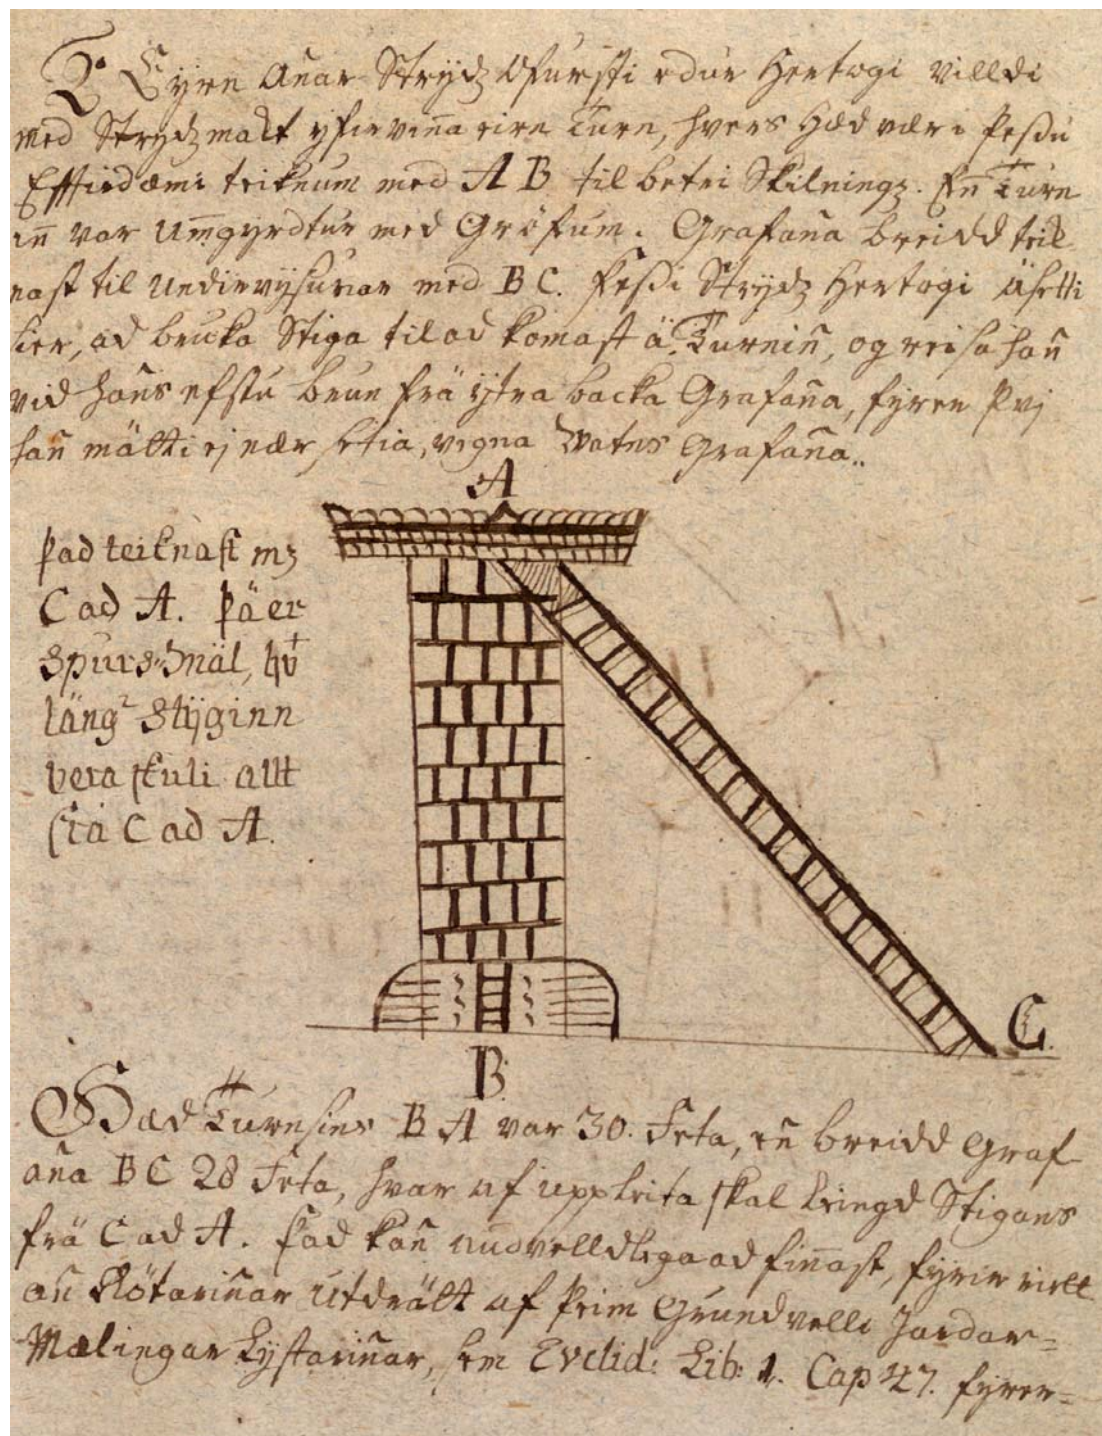 Eyrn Anar Strijdz Ofursti edur Hertogi villdi
med Strijdz makt yfervina eirn Turn, hvers Hæd være i þessu
Efftirdæmi teiknum med A B til betri Skilningz. En Turn
in var Umgyrdtur med Gröfum. Grafana breidd teik
nast til Undirvijsunar med B C. þessi Strijdz Hertogi äsetti
sier, ad bruka Stiga til ad komast ä Turnin, og reisa han
vid hans efstu brun frä ijtra backa Grafana, fyrer þvj
han mätti ej nær setia, vegna Vatns Grafana..
A
þad teiknast mz
C ad A. þä er
Spurs-mäl, hv
läng² Stijginn
vera skuli allt
frä C ad A.
C.
B
Hæd Turnsins B A var 30. Feta, en breidd Graf-
ana B C 28 Feta, hvar af uppleita skal leingd Stigans
frä C ad A. þad kan audvelldlega ad finast, fyrir riett
an Rötarinar Utdrätt af þeim Grundvelle Jardar=
Mælingar Lystarinar, sem Evclid: Lib: 1. Cap 47. fyrer=